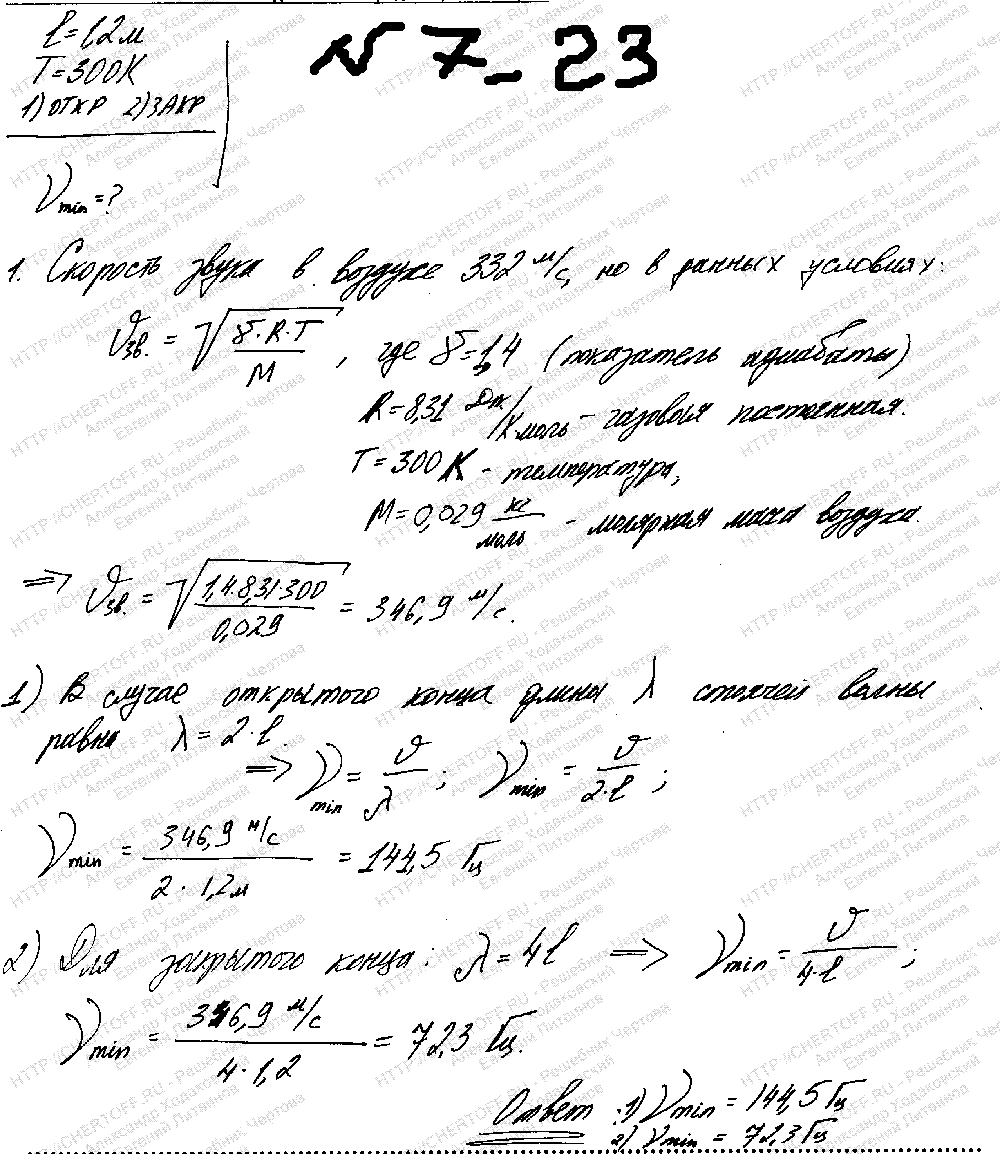 l=1,2м
T=300K
1) ОТКР 2) ЗАКР
ν min = ?
№ 7-23
1. Скорость звука в воздухе 332 м/с, но в данных условиях:
υ зв. = √(γ·R·T / M), где γ=1,4 (показатель адиабаты)
R=8,31 Дж/К моль - газовая постоянная.
T=300K - температура,
M=0,029 кг/моль - молярная масса воздуха.
=> υ зв. = √(1,4·8,31·300 / 0,029) = 346,9 м/с.
1) В случае открытого конца длины λ стоячей волны
равна λ = 2·l.
=> ν min = υ/λ; ν min = υ/2·l;
ν min = 346,9 м/с / 2·1,2м = 144,5 Гц
2) Для закрытого конца: λ = 4l => ν min = υ/4·l;
ν min = 346,9 м/с / 4·1,2 = 72,3 Гц.
Ответ: 1) ν min = 144,5 Гц
2) ν min = 72,3 Гц
HTTP://CHERTOFF.RU - Решебник Чертова
Александр Ходаковский
Евгений Литвинов